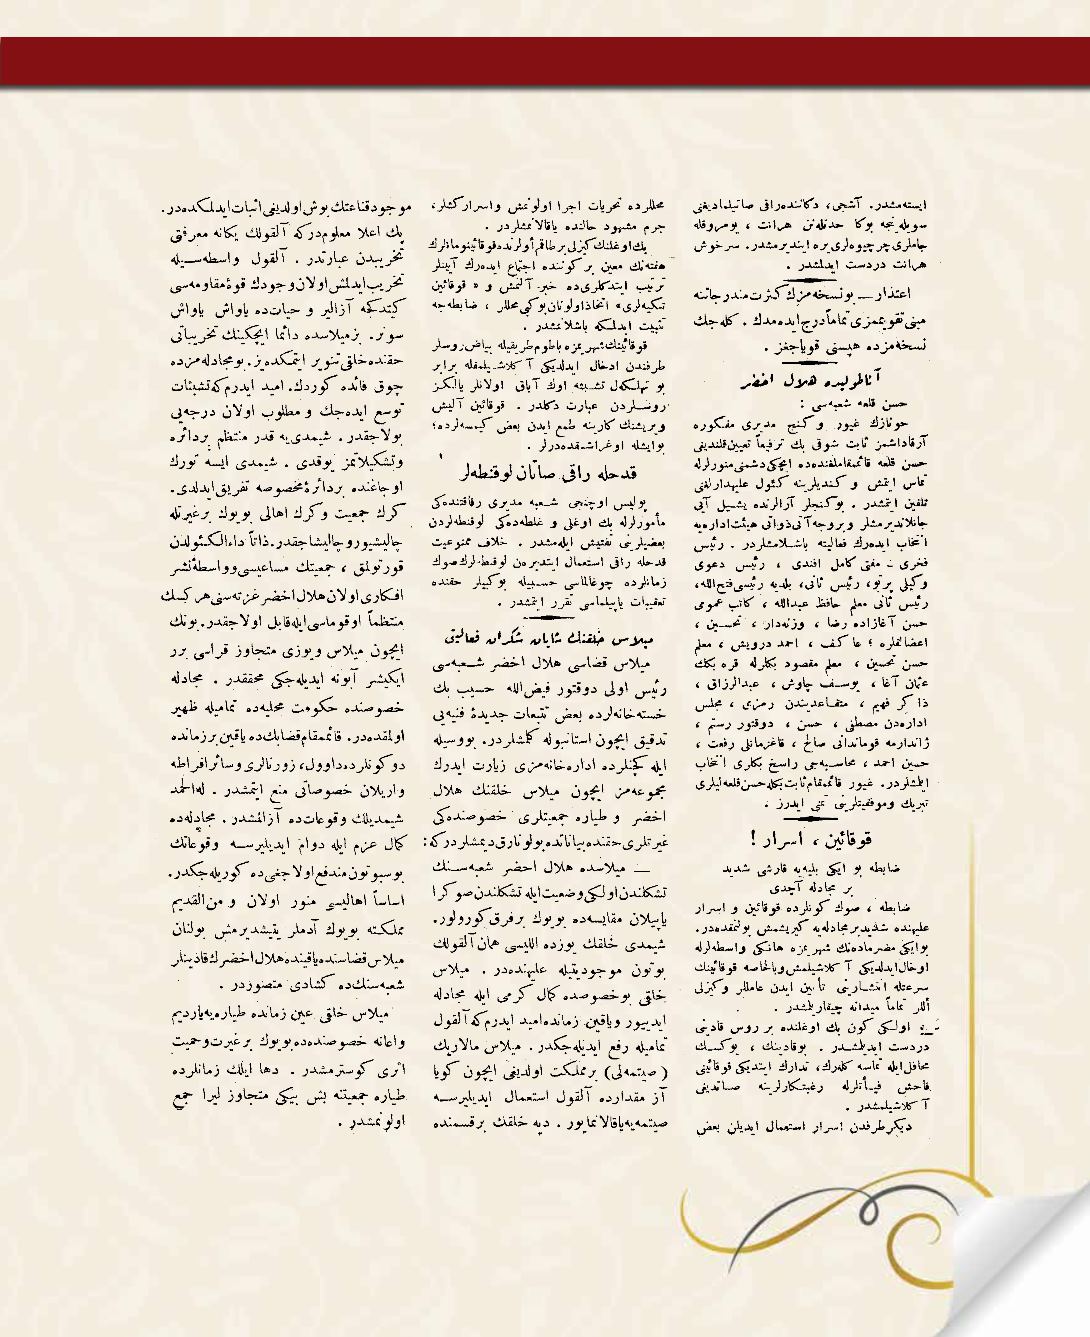 ايسته‌مشدر. آشجى، دكاننده راقى صاتيلماديغنى
سويله‌ينجه بوكا حدتله‌نن هرانت ، يومروقله
جاملرى چرچيوه‌لرى يره اينديرمشدر. سرخوش
هرانت دردست ايدلمشدر .
اعتذار — بو نسخه‌مزك كثرت مندرجاتنه
مبنى تقويممزى تماماً درج ايده‌مدك . كله‌جك
نسخه‌مزده هپسنى قوياجغز .
آناطوليده هلال اخضر
حسن قلعه شعبه‌سى :
جوتازك غيور و كنج مديرى مفكوره
آرقاداشمز ثابت شوقى بك ترفيعاً تعيين قلنديغى
حسن قلعه قائممقاملغنده‌ده ايچكى دشمنى منورلرله
تماس ايتمش و كنديلرينه كئول عليهدارلغنى
تلقين ايتمشدر . بو كنجلر آزالرنده يشيل آيى
جانلانديرمشلر و بروجه آتى ذواتى هيئت اداره‌يه
انتخاب ايده‌رك فعاليته باشلامشلردر . رئيس
فخرى : مفتى كامل افندى ، رئيس دعوى
وكيلى پرتو، رئيس ثانى، بلديه رئيسى فتح الله،
رئيس ثانى معلم حافظ عبدالله ، كاتب عمومى
حسن آغازاده رضا ، وزنه‌دار ، تحسين ،
اعضالقلره ؛ عاكف ، احمد درويش ، معلم
حسن تحسين ، معلم مقصود بكلرله قره بكك
عثمان آغا ، يوسف چاوش ، عبدالرزاق ،
ذاكر فهيم ، متقاعديندن رمزى ، مجلس
اداره‌دن مصطفى ، حسن ، دوقتور رستم ،
ژاندارمه قوماندانى صالح ، قاغزمانلى رفعت ،
حسين احمد ، محاسبه‌جى راسخ بكلرى انتخاب
ايلمشلردر. غيور قائممقام ثابت بكله حسن قلعه‌ليلرى
تبريك وموفقيتلرينى تمنى ايدرز .
قوقائين ، اسرار !
ضابطه بو ايكى بليه‌يه قارشى شديد
بر مجادله آچدى
ضابطه ، صوك كونلرده قوقائين و اسرار
عليهنده شديد بر مجادله‌يه كيريشمش بولنمقده‌در.
بو ايكى مضر ماده‌نك شهريمزه هانكى واسطه‌لرله
ادخال ايدلديكى آكلاشيلمش و بالخاصه قوقائينك
سرعتله انتشارينى تأمين ايدن عاملر و كيزلى
أللر تماماً ميدانه چيقاريلمشدر .
اولكى كون بك اوغلنده بر روس قادينى
دردست ايديلمشدر . بو قادينك ، يوكسك
محافل ايله تماسه كله‌رك، تدارك ايتديكى قوقائينى
فاحش فيأتلرله رغبتكارلرينه صاتديغى
آكلاشيلمشدر .
ديكر طرفدن اسرار استعمال ايديلن بعض
محللرده تحريات اجرا اولونمش واسراركشلر،
جرم مشهود حالنده ياقالانمشلردر .
بك اوغلنك كيزلى بر طاقم أولرنده قوقائينومانلرك
هفته‌نك معين بر كوننده اجتماع ايده‌رك آيينلر
ترتيب ايتدكلرى‌ده خبر آلنمش و « قوقائين
تنكيه‌لرى » اتخاذ اولونان بو كبى محللر ، ضابطه‌جه
تثبيت ايدلمكه باشلانمشدر .
قوقائينك شهريمزه باطوم طريقيله بياض روسلر
طرفندن ادخال ايدلديكى آكلاشيلمقله برابر
بو تهلكه‌لى تشبثه اوك آياق اولانلر يالكز
روسلردن عبارت دكلدر . قوقائين آليش
ويريشنك كارينه طمع ايدن بعض كيمسه‌لرده؛
بو ايشله اوغراشمقده‌درلر .
قدحله راقى صاتان لوقنطه‌لر
پوليس اوچنجى شعبه مديرى رفاقتنده‌كى
مأمورلرله بك اوغلى و غلطه‌ده‌كى لوقنطه‌لردن
بعضيلرينى تفتيش ايله‌مشدر . خلاف ممنوعيت
قدحله راقى استعمال ايتديره‌ن لوقنطه‌لرك صوك
زمانلرده چوغالماسى حسبيله بوكيلر حقنده
تعقيبات ياپيلماسى تقرر ايتمشدر .
ميلاس خلقنك شايان شكران فعاليتى
ميلاس قضاسى هلال اخضر شعبه‌سى
رئيس اولى دوقتور فيض‌الله حسيب بك
خسته‌خانه‌لرده بعض تتبعات جديدهٔ فنيه‌يى
تدقيق ايچون استانبوله كلمشلردر. بو وسيله
ايله كچنلرده اداره‌خانه‌مزى زيارت ايدرك
مجموعه‌مز ايچون ميلاس خلقنك هلال
اخضر و طياره جمعيتلرى خصوصنده‌كى
غيرتلرى حقنده بياناتده بولونارق ديمشلردركه:
— ميلاسده هلال احضر شعبه‌سنك
تشكلندن اولكى وضعيت ايله تشكلندن صوكرا
ياپيلان مقايسه‌ده بويوك بر فرق كورولور.
شيمدى خلقك يوزده الليسى همان آلقولك
بوتون موجوديتيله عليهنده‌در . ميلاس
خلقى بو خصوصده كمال كرمى ايله مجادله
ايديبور و ياقين زمانده اميد ايدرم كه آلقول
تماميله رفع ايديله‌جكدر. ميلاس مالاريك
( صيتمه‌لى ) بر مملكت اولديغى ايچون كويا
آز مقدارده آلقول استعمال ايديليرسه
صيتمه‌يه ياقالانمايور . ديه خلقك بر قسمنده
موجود قناعتك بوش اولديغى اثبات ايدلمكده‌در.
پك اعلا معلومدركه آلقولك يكانه معرفتى
تخريبدن عبارتدر . آلقول واسطه‌سيله
تخريب ايدلمش اولان وجودك قوهٔ مقاومه‌سى
كيتدكجه آزالير و حيات‌ده ياواش ياواش
سونر. بز ميلاسده دائما ايچكينك تخريباتى
حقنده خلقى تنوير ايتمكده‌يز. بو مجادله‌مزده
چوق فائده كوردك. اميد ايدرم كه تشبثات
توسع ايده‌جك و مطلوب اولان درجه‌يى
بولاجقدر. شيمدى‌يه قدر منتظم بر دائره
وتشكيلاتمز يوقدى . شيمدى ايسه تورك
اوجاغنده بر دائرهٔ مخصوصه تفريق ايدلدى.
كرك جمعيت وكرك اهالى بويوك بر غيرتله
چاليشيور و چاليشاجقدر. ذاتاً داءالكئولدن
قورتولمق ، جمعيتك مساعيسى و واسطهٔ نشر
افكارى اولان هلال اخضر غزته‌سنى هركسك
منتظماً اوقوماسى ايله قابل اولاجقدر. بونك
ايچون ميلاس ويوزى متجاوز قراسى برر
ايكيشر آبونه ايديله‌جكى محققدر . مجادله
خصوصنده حكومت محليه‌ده تماميله ظهير
اولمقده‌در. قائممقام قضابك‌ده ياقين بر زمانده
دوكونلرده داوول، زورنالرى وسائر افراطه
واريلان خصوصاتى منع ايتمشدر . له‌الحمد
شيمديلك وقوعات‌ده آزالمشدر . مجادله‌ده
كمال عزم ايله دوام ايديليرسه وقوعاتك
بوسبوتون مندفع اولاجغى‌ده كوريله‌جكدر.
اساساً اهاليسى منور اولان و من‌القديم
مملكته بويوك آدملر يتيشديرمش بولنان
ميلاس قضاسنده ياقينده هلال اخضرك قادينلر
شعبه‌سنك‌ده كشادى متصوردر .
ميلاس خلقى عين زمانده طياره‌يه يارديم
واعانه خصوصنده‌ده بويوك بر غيرت وحميت
اثرى كوسترمشدر . دها ايلك زمانلرده
طياره جمعيتنه بش بيكى متجاوز ليرا جمع
اولونمشدر .